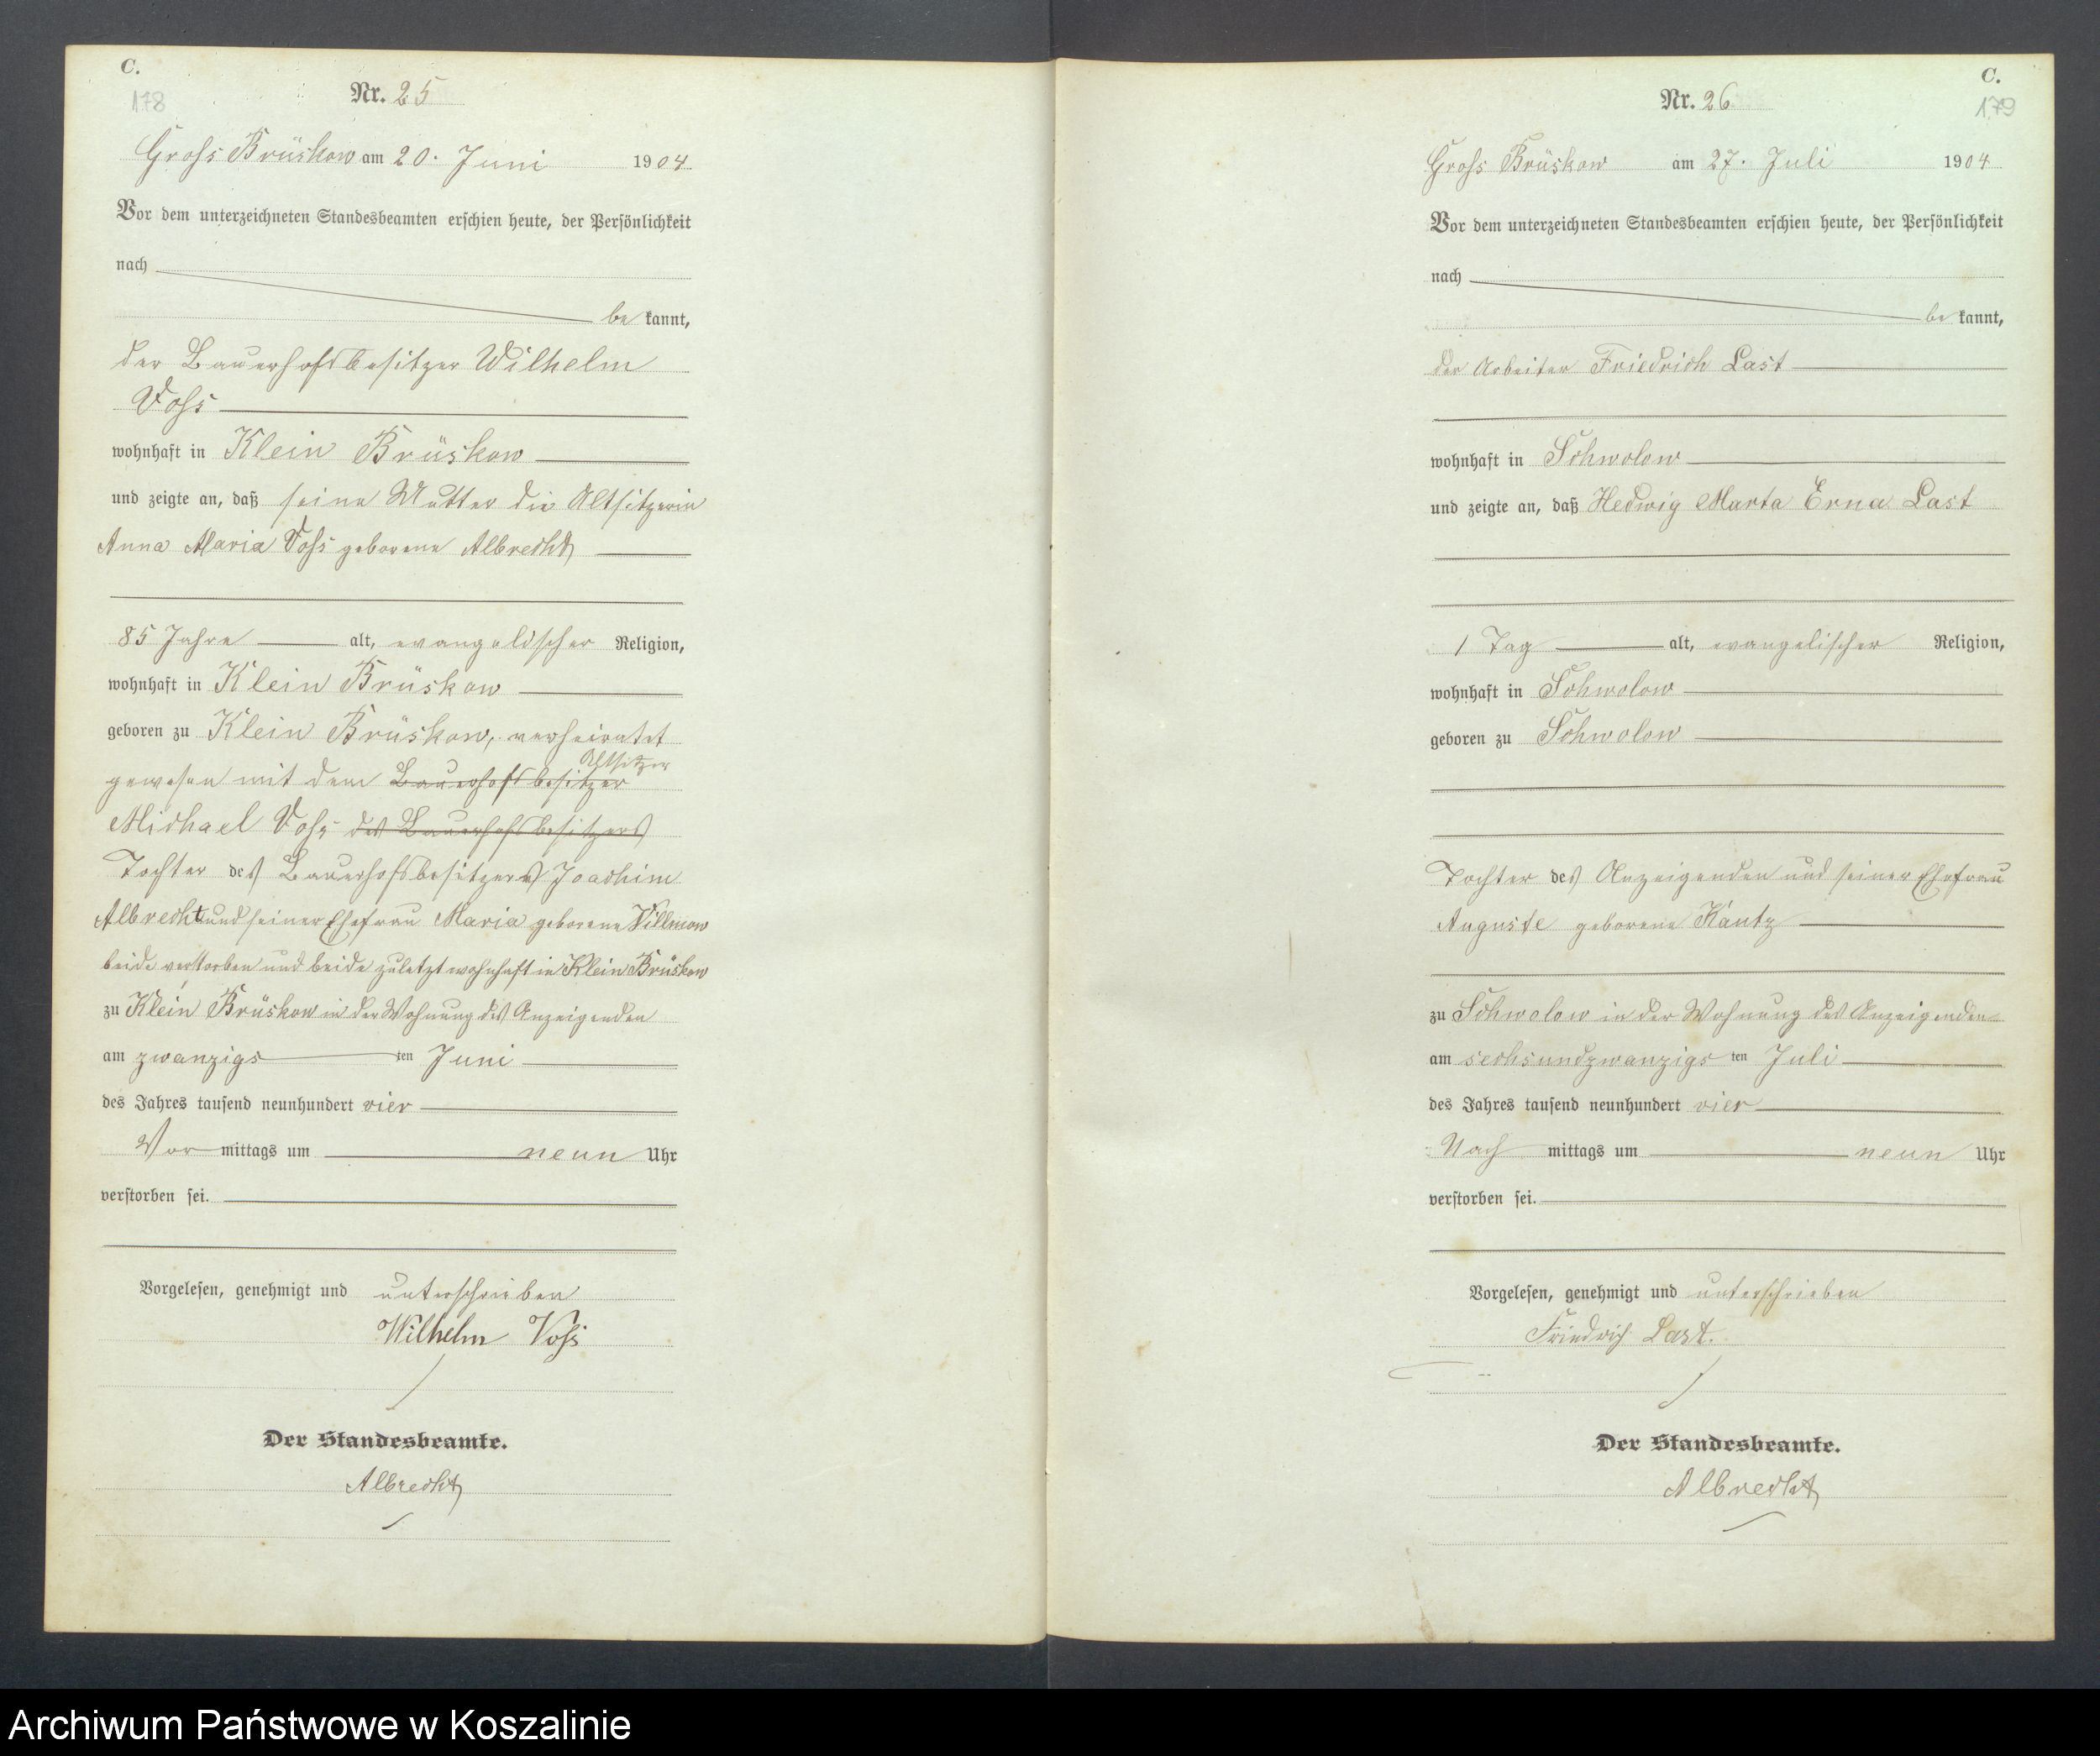 C.
178
Nr. 25
Gross Brüskow am 20. Juni 1904
Vor dem unterzeichneten Standesbeamten erschien heute, der Persönlichkeit
nach
be kannt,
der Bauerhofsbesitzer Wilhelm
Voss
wohnhaft in Klein Brüskow
und zeigte an, daß seine Mutter die Altsitzerin
Anna Maria Voss geborene Albrecht
85 Jahre alt, evangelischer Religion,
wohnhaft in Klein Brüskow
geboren zu Klein Brüskow, verheiratet
Altsitzer
gewesen mit dem Bauerhofsbesitzer
Michael Voss des Bauerhofsbesitzers
Tochter des Bauerhofsbesitzers Joachim
Albrecht und seiner Ehefrau Maria geborene Villmow
beide verstorben und beide zuletzt wohnhaft in Klein Brüskow
zu Klein Brüskow in der Wohnung des Anzeigenden
am zwanzigs ten Juni
des Jahres tausend neunhundert vier
Vor mittags um neun Uhr
verstorben sei.
Vorgelesen, genehmigt und unterschrieben
Wilhelm Voss
Der Standesbeamte.
Albrecht
C.
179
Nr. 26
Gross Brüskow am 27. Juli 1904
Vor dem unterzeichneten Standesbeamten erschien heute, der Persönlichkeit
nach
be kannt,
der Arbeiter Friedrich Last
wohnhaft in Schwolow
und zeigte an, daß Hedwig Marta Erna Last
1 Tag alt, evangelischer Religion,
wohnhaft in Schwolow
geboren zu Schwolow
Tochter des Anzeigenden und seiner Ehefrau
Auguste geborene Kautz
zu Schwolow in der Wohnung des Anzeigenden
am sechsundzwanzigs ten Juli
des Jahres tausend neunhundert vier
Nach mittags um neun Uhr
verstorben sei.
Vorgelesen, genehmigt und unterschrieben
Friedrich Last.
Der Standesbeamte.
Albrecht
Archiwum Państwowe w Koszalinie